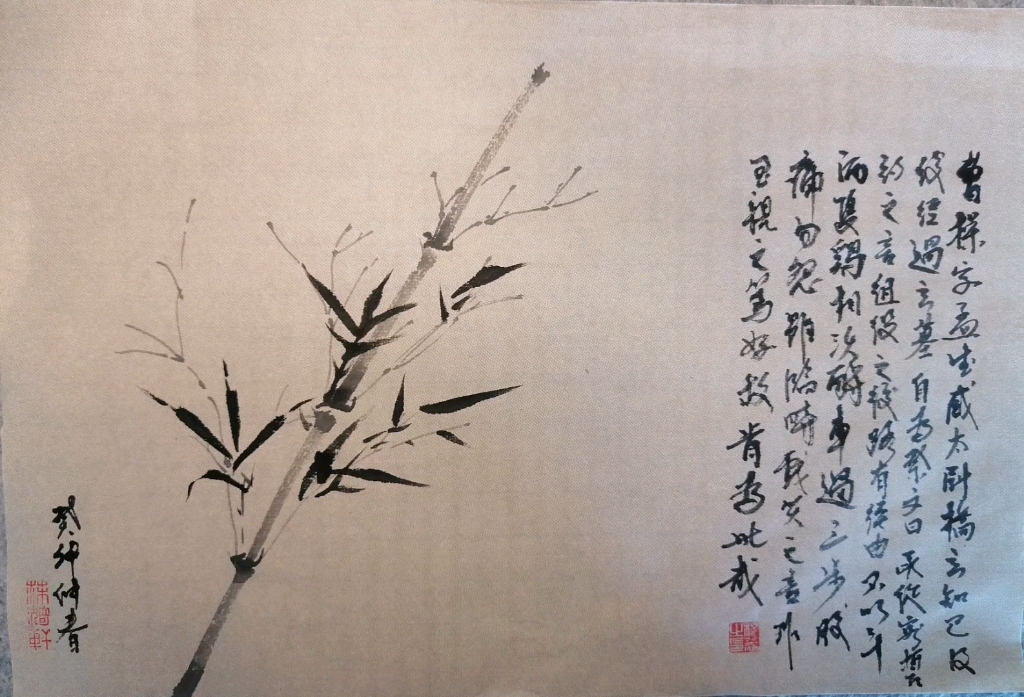 曹操字孟德感太尉橋玄知己及
後經過玄墓自為祭文曰承從容誓
約之言徂没之後路有經由不以斗
酒隻鷄相沃酹車過三步腹
痛勿怨雖臨時戲笑之言非
至親之篤好故肯為此哉
癸卯仲春